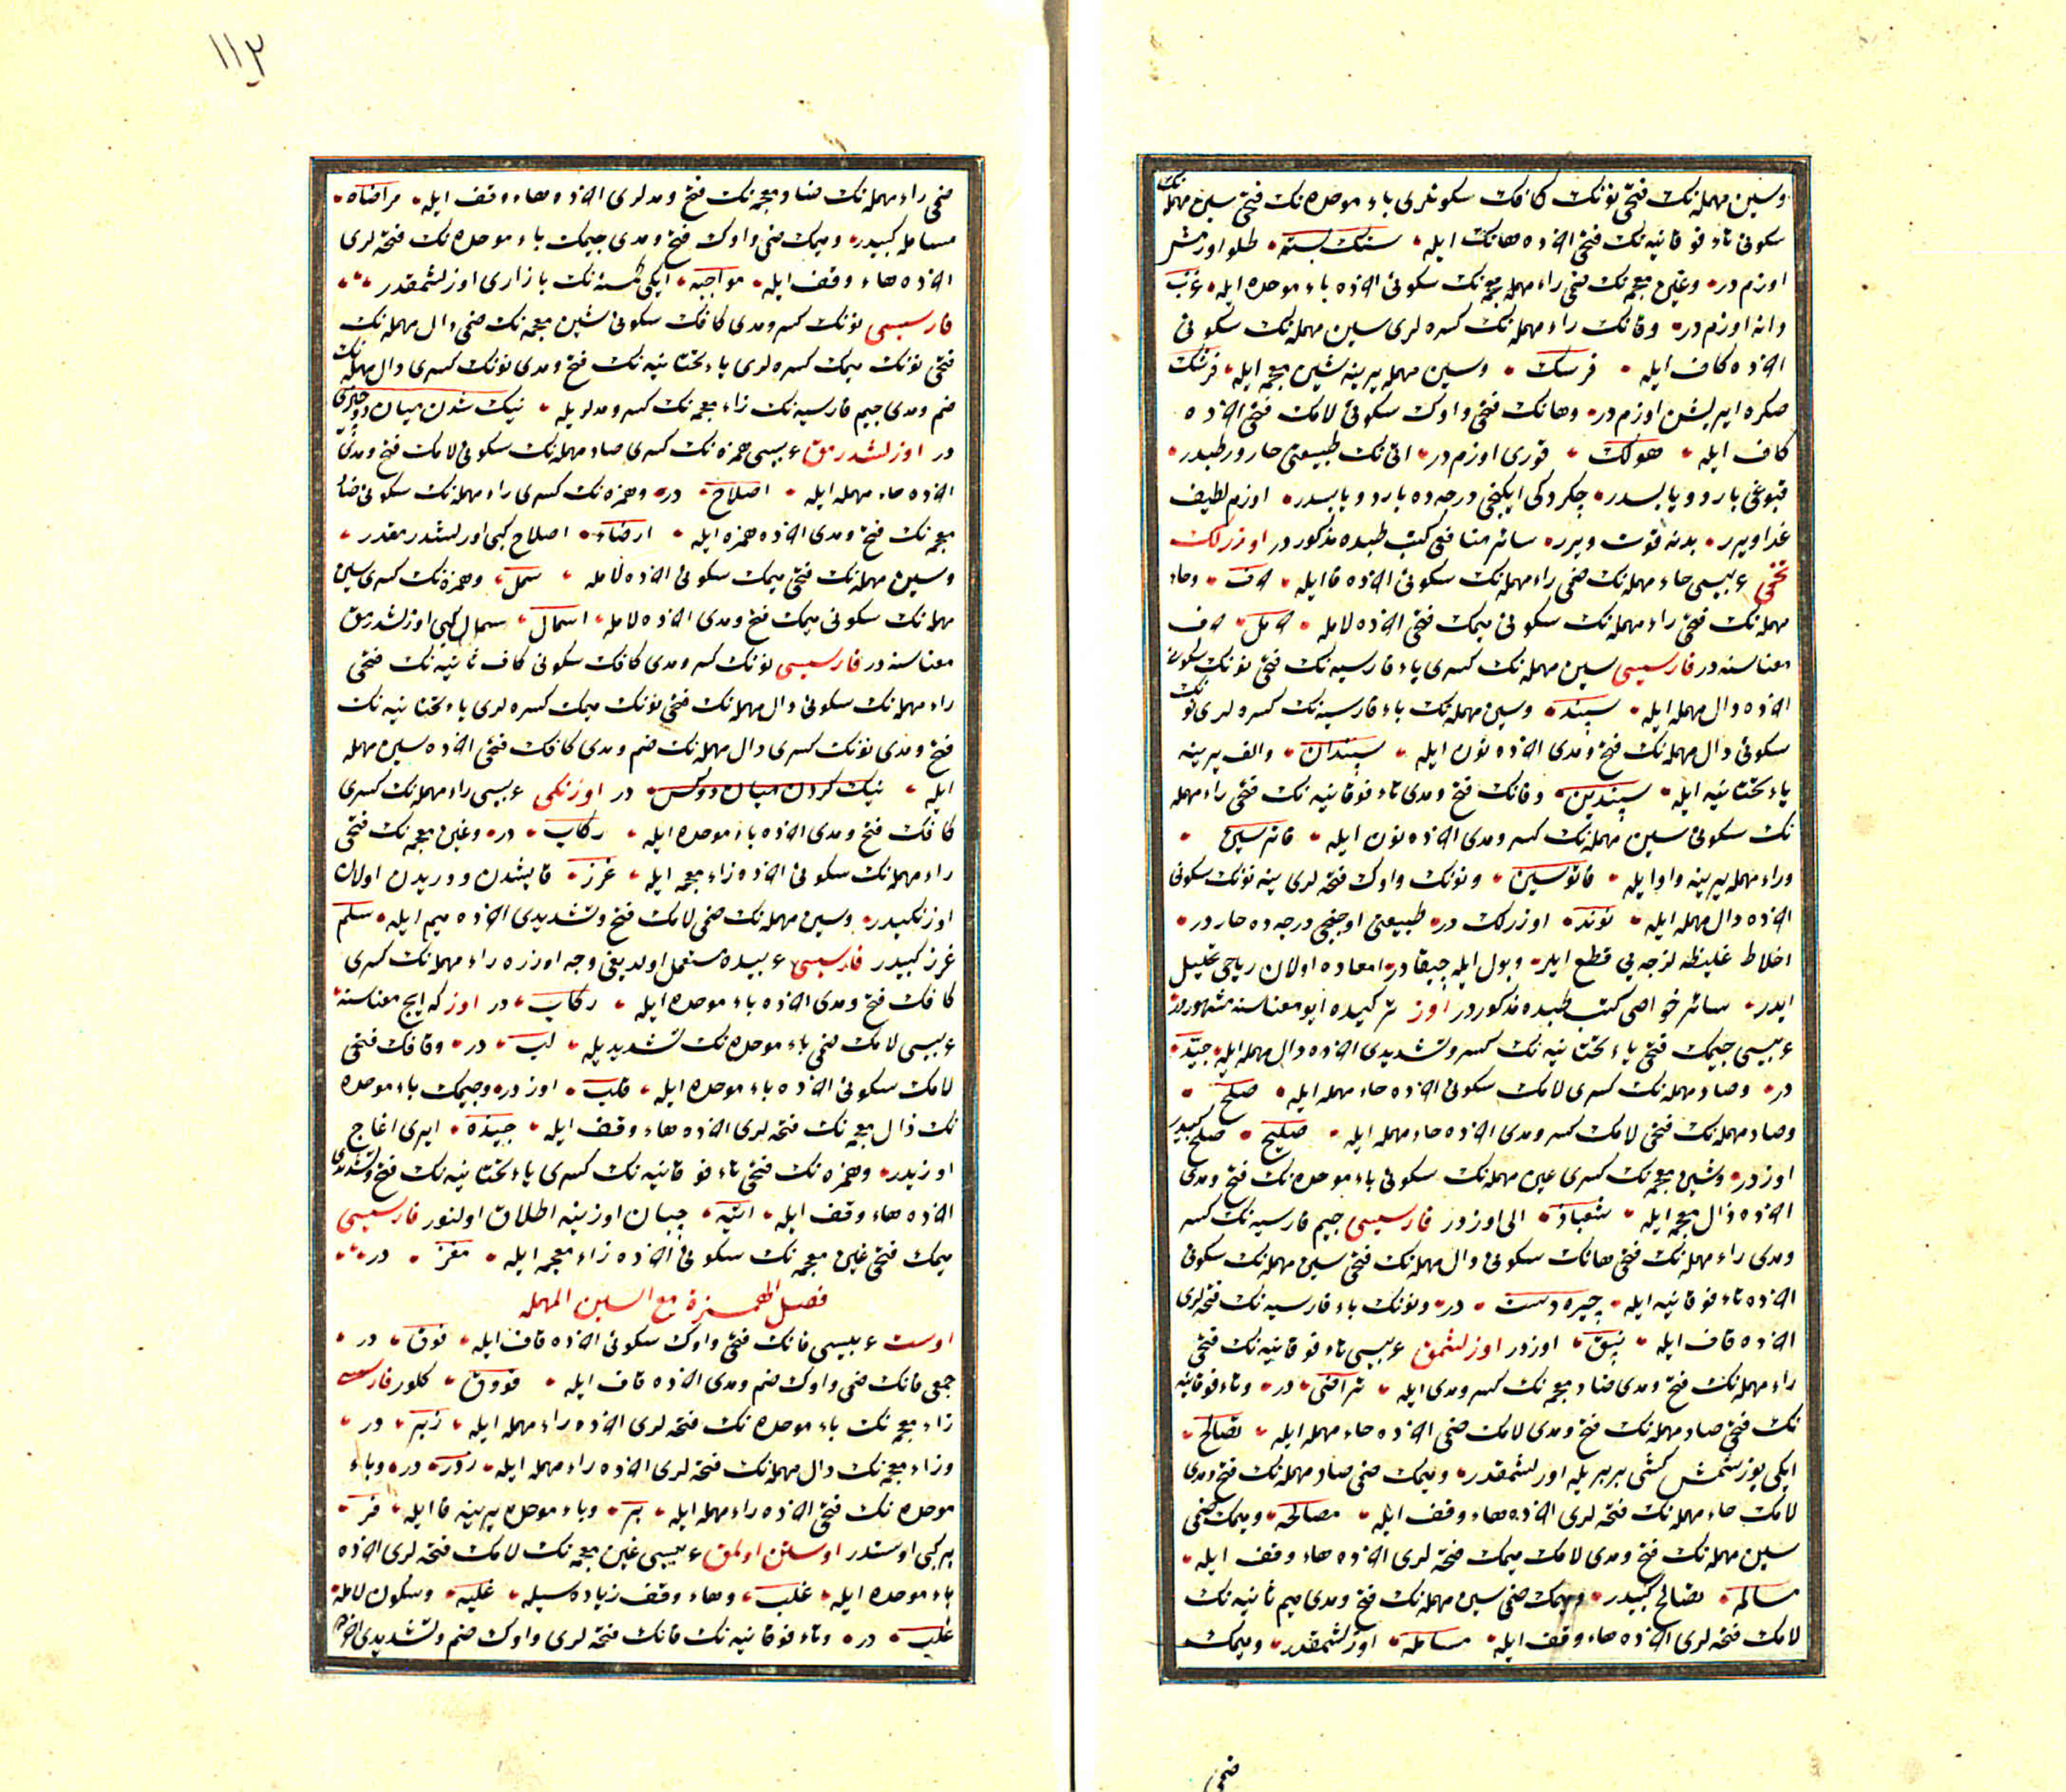 وسین مهمله‌نك فتحی نونك كافك سكونلری باء موحده‌نك فتحی سین مهمله‌نك
سكونی تاء فوقانیه‌نك فتحی اخرده هانك ایله سنك بسته طلو اوزمش
اوزم در وغین معجمه‌نك فتحی راء مهمله‌نك سكونی اخرده باء موحده ایله غرب
دانه اوزم در وفانك راء مهمله‌نك كسره‌لری سین مهمله‌نك سكونی
اخرده كاف ایله فرسك وسین مهمله یرینه شین معجمه ایله فرشك
صكره ایریشن اوزم در وهانك فتحی واوك سكونی لامك فتحی اخرده
كاف ایله هولك قوری اوزم در انك طبیعتی حار ورطبدر
قبوغی بارد ویابسدر چكردكی ایكنجی درجه‌ده بارد ویابسدر اوزم لطیف
غدا ویرر بدنه قوت ویرر سائر منافعی كتب طبده مذكوردر اوزرلك
تخمی عربیسی حاء مهمله‌نك ضمی راء مهمله‌نك سكونی اخرده فا ایله حرف وحاء
مهمله‌نك فتحی راء مهمله‌نك سكونی میمك فتحی اخرده لامله حرمل حرف
معناسنه در فارسیسی سین مهمله‌نك كسری پاء فارسیه‌نك فتحی نونك سكونی
اخرده دال مهمله ایله سپند وسین مهمله‌نك پاء فارسیه‌نك كسره‌لری نونك
سكونی دال مهمله‌نك فتح ومدی اخرده نون ایله سپندان والف یرینه
یاء تحتانیه ایله سپندین وفانك فتح ومدی تاء فوقانیه‌نك فتحی راء مهمله
نك سكونی سین مهمله‌نك كسر ومدی اخرده نون ایله فاترسین
وراء مهمله یرینه واو ایله فاتوسین ونونك واوك فتحه‌لری ینه نونك سكونی
اخرده دال مهمله ایله نوند اوزرلك در طبیعتی اوچنجی درجه‌ده حار در
اخلاط غلیظه لزجه‌یی قطع ایدر وبول ایله چیقادر امعاده اولان ریاحی تحلیل
ایدر سائر خواصی كتب طبده مذكوردر اوز تركیده ایو معناسنه مشهوردر
عربیسی جیمك فتحی یاء تحتانیه‌نك كسر وتشدیدی اخرده دال مهمله ایله جید
در وصاد مهمله‌نك كسری لامك سكونی اخرده حاء مهمله ایله صلح
وصاد مهمله‌نك فتحی لامك كسر ومدی اخرده حاء مهمله ایله صلیح صلح كبیدر
اوز در وشین معجمه‌نك كسری عین مهمله‌نك سكونی باء موحده‌نك فتح ومدی
اخرده ذال معجمه ایله شعباذ الی اوزدر فارسیسی جیم فارسیه‌نك كسر
ومدی راء مهمله‌نك فتحی هانك سكونی دال مهمله‌نك فتحی سین مهمله‌نك سكونی
اخرده تاء فوقانیه ایله چیره دست در ونونك باء فارسیه‌نك فتحه‌لری
اخرده قاف ایله نپق اوزدر اوزلشمق عربیسی تاء فوقانیه‌نك فتحی
راء مهمله‌نك فتح ومدی ضاد معجمه‌نك كسر ومدی ایله تراضی در وتاء فوقانیه
نك فتحی صاد مهمله‌نك فتح ومدی لامك ضمی اخرده حاء مهمله ایله تصالح
ایكی یوز سنمش كشی بربریله اوزلشمقدر ومیمك ضمی صاد مهمله‌نك فتح ومدی
لامك حاء مهمله‌نك فتحه‌لری اخرده هاء وقف ایله مصالحه ومیمك ضمی
سین مهمله‌نك فتح ومدی لامك میمك فتحه‌لری اخرده هاء وقف ایله
مسالمه تصالح كبیدر ومیمك ضمی سین مهمله‌نك فتح ومدی میم ثانیه‌نك
لامك فتحه‌لری اخرده هاء وقف ایله مسامله اوزلشمقدر ومیمك
ضمی
١١٣
ضمی راء مهمله‌نك ضاد معجمه‌نك فتح ومدلری اخرده هاء وقف ایله مراضاه
مسامله كبیدر ومیمك ضمی واوك فتح ومدی جیمك باء موحده‌نك فتحه‌لری
اخرده هاء وقف ایله مواجبه ایكی كسنه‌نك بازاری اوزلشمقدر
فارسیسی نونك كسر ومدی كافك سكونی شین معجمه‌نك ضمی دال مهمله‌نك
فتحی نونك میمك كسره‌لری یاء تحتانیه‌نك فتح ومدی نونك كسری دال مهمله‌نك
ضم ومدی جیم فارسیه‌نك زاء معجمه‌نك كسر ومدلریله نیك شدن میان دو چیزی
در اوزلشدرمق عربیسی همزه‌نك كسری صاد مهمله‌نك سكونی لامك فتح ومدی
اخرده حاء مهمله ایله اصلاح در وهمزه‌نك كسری راء مهمله‌نك سكونی ضاد
معجمه‌نك فتح ومدی اخرده همزه ایله ارضاء اصلاح كبی اوزلشدرمقدر
وسین مهمله‌نك فتحی میمك سكونی اخرده لامله سمل وهمزه‌نك كسری سین
مهمله‌نك سكونی میمك فتح ومدی اخرده لامله اسمال سمال كبی اوزلشدرمق
معناسنه در فارسیسی نونك كسر ومدی كافك سكونی كاف ثانیه‌نك فتحی
راء مهمله‌نك سكونی دال مهمله‌نك فتحی نونك میمك كسره‌لری یاء تحتانیه‌نك
فتح ومدی نونك كسری دال مهمله‌نك ضم ومدی كافك فتحی اخرده سین مهمله
ایله نیك كردن میان دو كس در اوزنكی عربیسی راء مهمله‌نك كسری
كافك فتح ومدی اخرده باء موحده ایله ركاب در وغین معجمه‌نك فتحی
راء مهمله‌نك سكونی اخرده زاء معجمه ایله غرز قایشدن ودریدن اولان
اوزنكیدر وسین مهمله‌نك ضمی لامك فتح وتشدیدی اخرده میم ایله سلم
غرز كبیدر فارسیسی عربیده مستعمل اولدیغی وجه اوزره راء مهمله‌نك كسری
كافك فتح ومدی اخرده باء موحده ایله ركاب در اوز كه ایچ معناسنه
عربیسی لامك ضمی باء موحده‌نك تشدیدیله لب در وقافك فتحی
لامك سكونی اخرده باء موحده ایله قلب اوز در وجیمك باء موحده
نك ذال معجمه‌نك فتحه‌لری اخرده هاء وقف ایله جبذه ایری اغاج
اوزیدر وهمزه‌نك فتحی تاء فوقانیه‌نك كسری یاء تحتانیه‌نك فتح وتشدیدی
اخرده هاء وقف ایله اتیه چبان اوزینه اطلاق اولنور فارسیسی
میمك فتحی غین معجمه‌نك سكونی اخرده زاء معجمه ایله مغز در
فصل الهمزة مع السین المهمله
اوست عربیسی فانك فتحی واوك سكونی اخرده قاف ایله فوق در
جمعی فانك ضمی واوك ضم ومدی اخرده قاف ایله فووق كلور فارسیسی
زاء معجمه‌نك باء موحده‌نك فتحه‌لری اخرده راء مهمله ایله زبر در
وزاء معجمه‌نك دال مهمله‌نك فتحه‌لری اخرده راء مهمله ایله زدر در وباء
موحده‌نك فتحی اخرده راء مهمله ایله بر وباء موحده یرینه فا ایله فر
بر كبی اوستدر اوستن اولمق عربیسی غین معجمه‌نك لامك فتحه‌لری اخرده
باء موحده ایله غلب وهاء وقف زیاده‌سیله غلبه وسكون لامله
غلب در وتاء فوقانیه‌نك فانك فتحه‌لری واوك ضم وتشدیدی اخرده